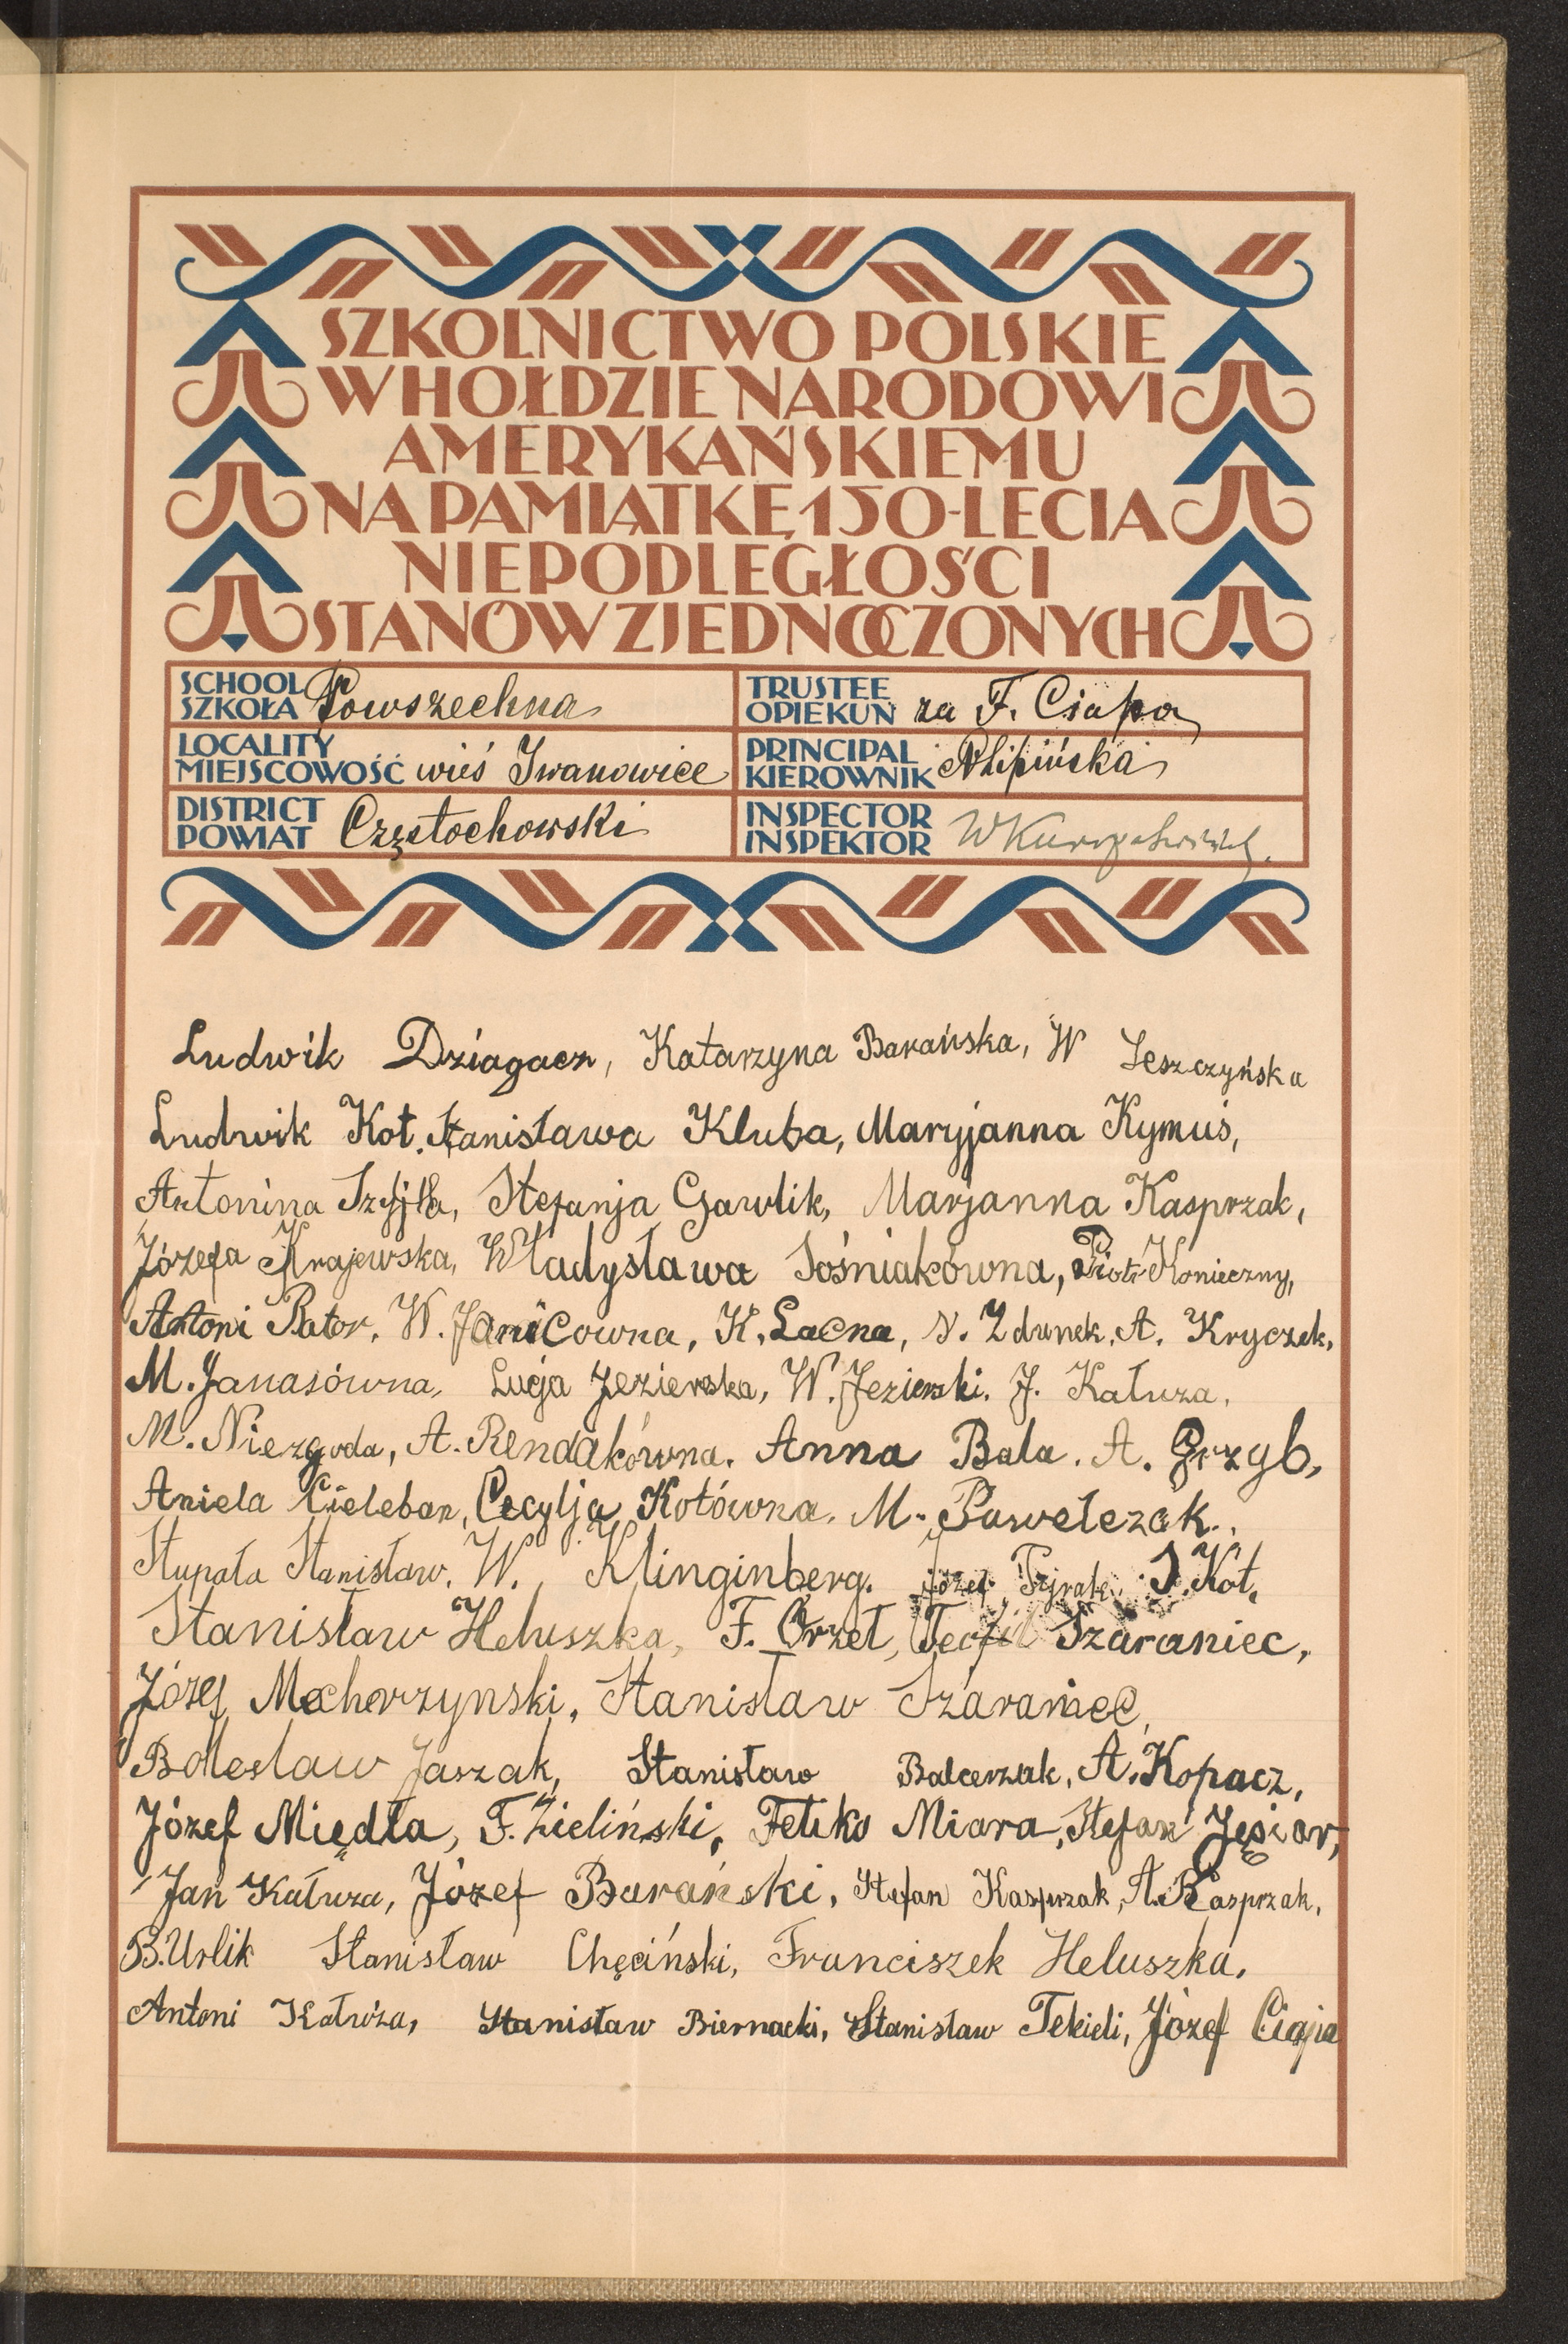 SZKOLNICTWO POLSKIE
W HOŁDZIE NARODOWI
AMERYKAŃSKIEMU
NA PAMIĄTKĘ 150-LECIA
NIEPODLEGŁOŚCI
STANÓW ZJEDNOCZONYCH
SCHOOL
SZKOŁA Powszechna
TRUSTEE
OPIEKUN za F. Ciapa
LOCALITY
MIEJSCOWOŚĆ wieś Iwanowice
PRINCIPAL
KIEROWNIK Alipińska
DISTRICT
POWIAT Częstochowski
INSPECTOR
INSPEKTOR
Ludwik Dziagacz, Katarzyna Barańska, W Leszczyńska
Ludwik Kot. Stanisława Kluba, Maryjanna Kymuś,
Antonina Szyjka, Stefanja Gawlik, Marjanna Kasprzak,
Józefa Krajewska, Władysława Sośniakówna, Piotr Konieczny,
Antoni Pator, W. Janicowna, K. Lacna, N. Zdunek, A. Kryczek.
M. Janasówna, Lucja Jezierska, W. Jezierski. J. Kałuza,
M. Niezgoda, A. Rendakówna. Anna Bala. A. Grzyb,
Aniela Cieleban, Cecylja Kotówna. M. Pawełczak.
Stupała Stanisław. W. Klinginberg. Józef S. Kot,
Stanisław Heluszka, F. Orzeł, Teofil Szaraniec,
Józef Mecherzynski, Stanisław Szaraniec,
Bolesław Jaszak, Stanisław Balcerzak, A. Kopacz,
Józef Międła, F. Zieliński, Feliks Miara, Stefan Jęsiar,
Jan Kałuza, Józef Barański, Stefan Kasprzak, A. Kasprzak,
B. Urlik Stanisław Chęciński, Franciszek Heluszka,
Antoni Kałuża, Stanisław Biernacki, Stanisław Tekieli, Józef Ciapa